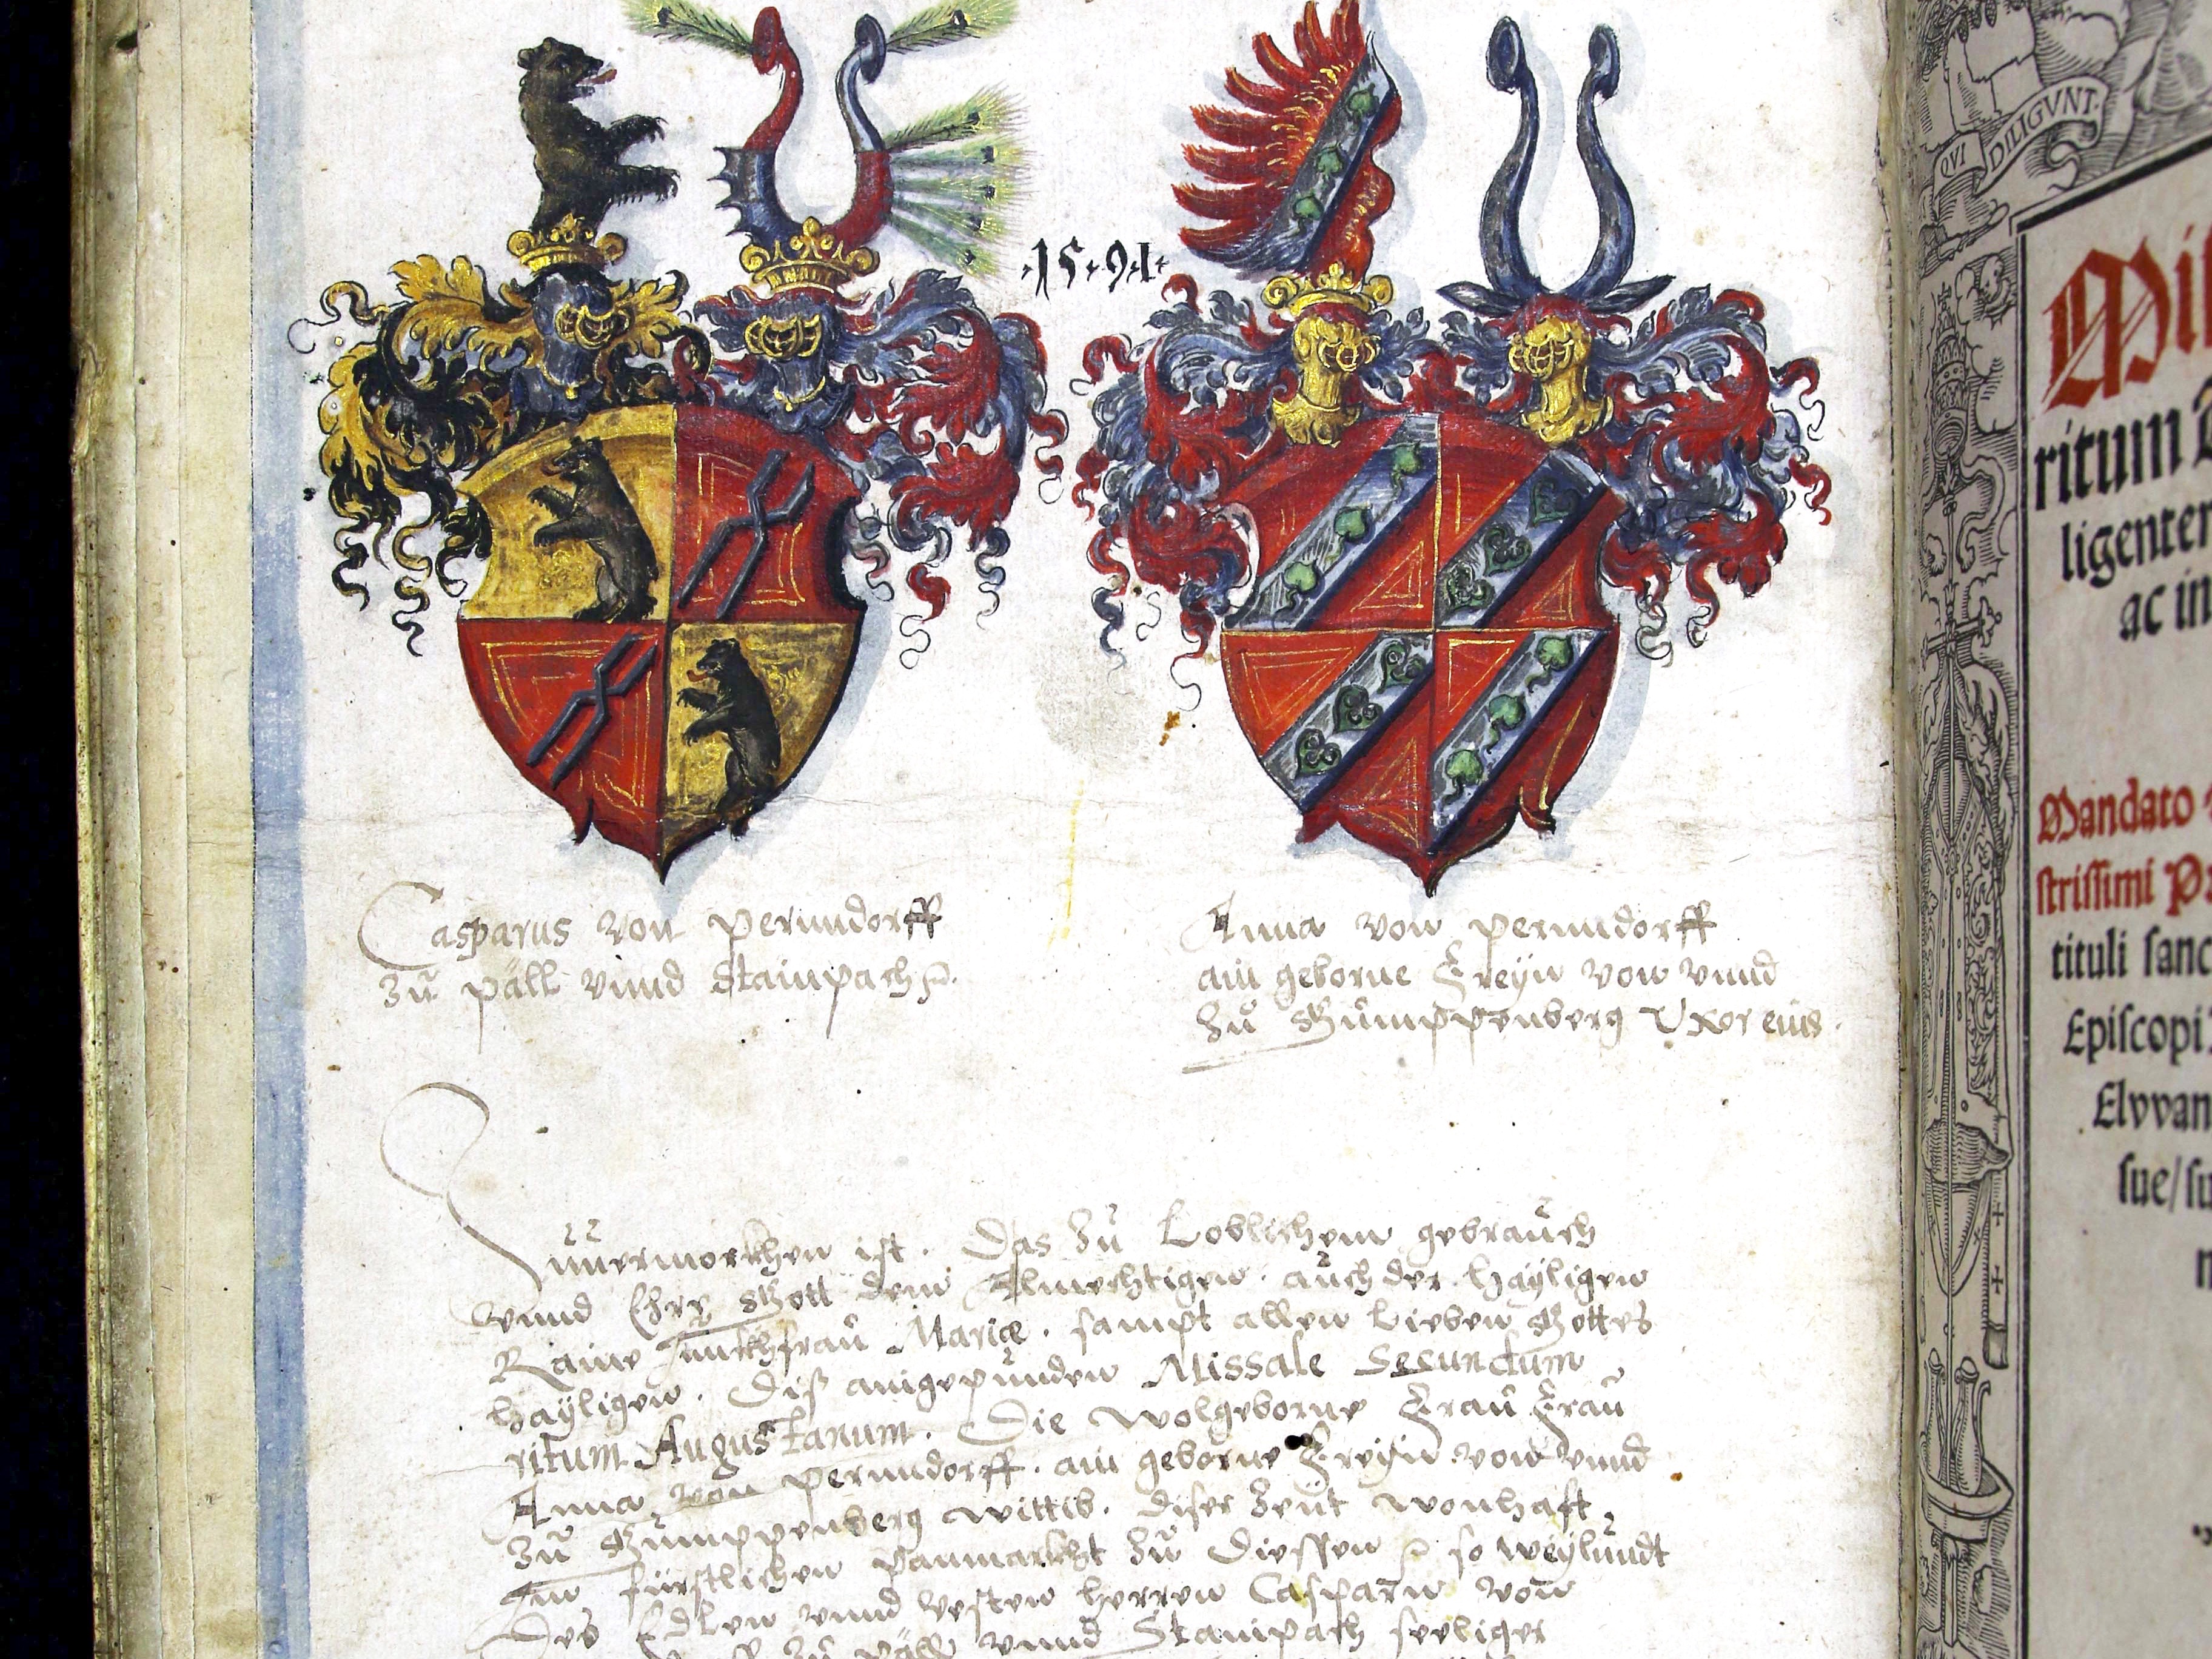 ·15·91·
Casparus von Pernndorff
zů Päll vnnd Stainpach
Anna von Pernndorff
ain geborne Freÿin von vnnd
zů Gůmppenberg Vxor eius.
Zůuermerckhen ist. Das zů Loblichem gebraůch
vnnd Ehre Gott dem Almechtigen. aůch der Haÿligen
Raine Junckhfraů Mariæ. sampt allen Lieben Gottes
Haÿligen. Diß eingepůnden Missale Secundum
ritum Augustanum. Die Wolgeborne Fraů Fraů
Anna von Pernndorff. ain geborne Freÿin von vnnd
zů Gůmppenberg Wittib. diser Zeÿt wonhaft
Im fürstlichen Panmarckht zů Diessen so Weÿlůndt
Des Edlen vnnd Vesten Herren Casparn von
zů Päll vnnd Stainpach seeliger
QVI DILIGVNT
Mis
ritum
ligenter
ac in
Mandato
strissimi
tituli sanc
Episcopi
Elvvan
sue/su